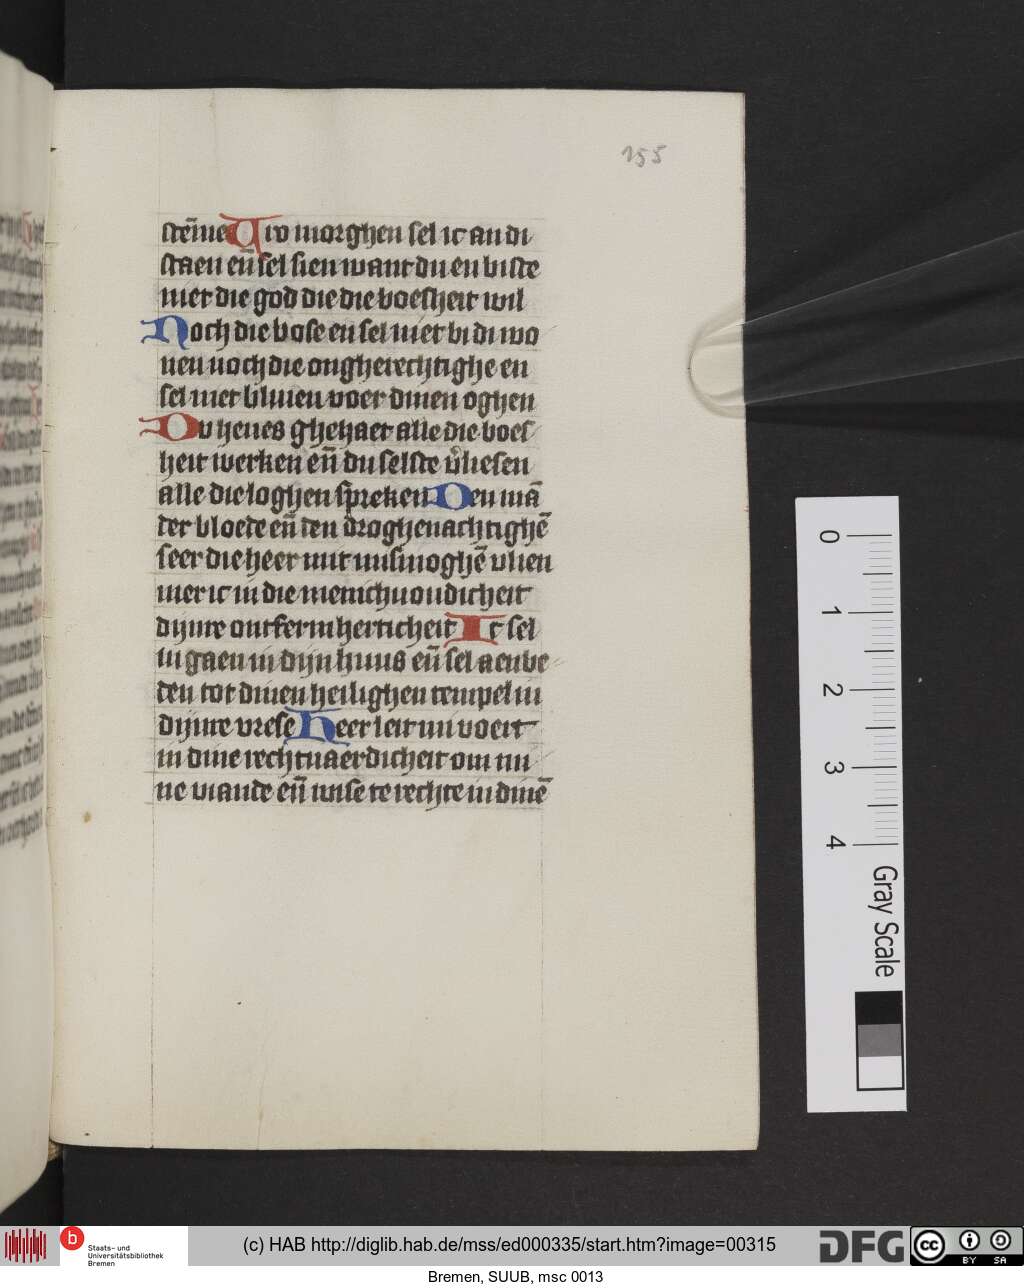 155
stēme Uro morghen sel ic an di
staen eñ sel sien want du en biste
niet die god die die boesheit wil
Noch die bose en sel niet bi di wo
nen noch die ongherechtighe en
sel niet bliuen voer dinen oghen
Du heues ghehaet alle die boes
heit werken eñ du selste v͛liesen
alle die loghen spreken Den mā
der bloede eñ den droghenachtighē
seer die heer mit
mer ic in die menichuoudicheit
dijnre ontfermherticheit Ic sel
in gaen in dijn huus eñ sel aenbe
den tot dinen heilighen tempel in
dijnre vrese Heer leit mi voert
in dine rechtuaerdicheit om mi
ne viande eñ wise te rechte in dinē
0
1
2
3
4
Gray Scale
b
Staats- und
Universitätsbibliothek
Bremen
(c) HAB http://diglib.hab.de/mss/ed000335/start.htm?image=00315
DFG
cc
BY SA
Bremen, SUUB, msc 0013